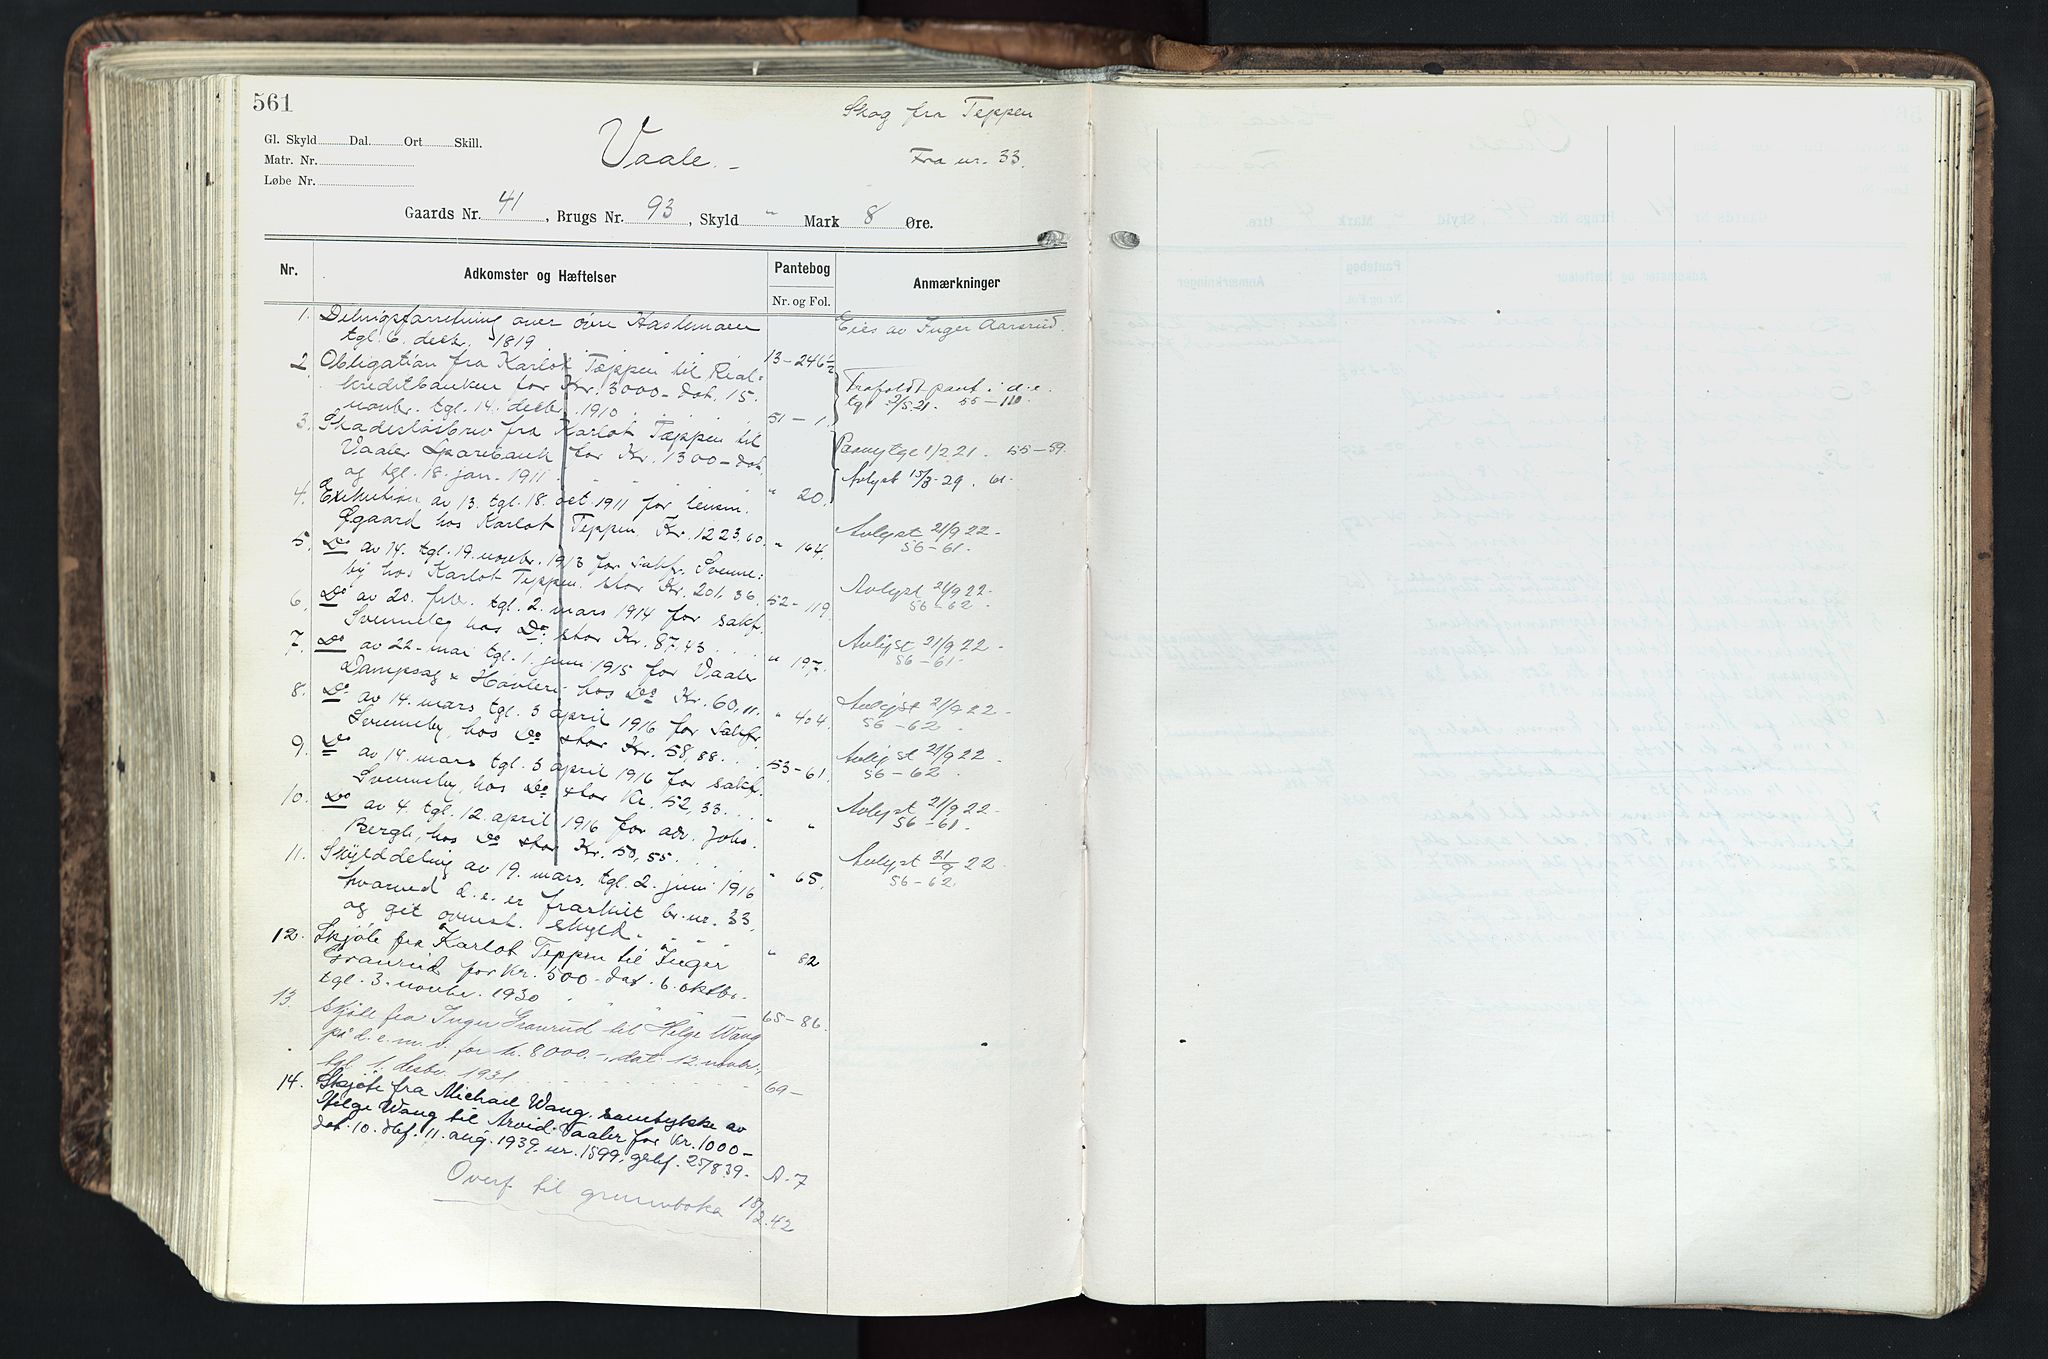 561
Skog fra Teppen
Gl. Skyld Dal. Ort Skill.
Vaale. -
Fra nr. 33.
Matr. Nr.
Løbe Nr.
Gaards Nr. 41, Brugs Nr. 93, Skyld " Mark 8 Øre.
Nr. Adkomster og Hæftelser Pantebog Anmærkninger
Nr. og Fol.
1. Delingsforretning over øvre Haslemoen Eies av Inger Aarsrud.
tgl. 6. decbr. 1819. 13 – 246 1/2
2. Obligation fra Karlot Teppen til Real=
kreditbanken for Kr. 3000 – dat. 15. Frafaldt pant i d.e.
novbr. tgl. 14. decbr. 1910. 51 – 1. tgl 2/5 21. 55 – 110.
3. Skadesløsbrev fra Karlot Teppen til
Vaaler Sparebank for Kr. 1300 – dat. 1/2 21. 55 – 59.
og tgl. 18. jan. 1911. " 20. Avlyst 15/3 - 29. 61 -
4. Exekution av 13. tgl. 18. oct. 1911 for lensm.
Øgaard hos Karlot Teppen Kr. 1223,60. " 164. Avlyst 21/9 22 -
56 – 61.
5. Do av 14. tgl. 19. novbr. 1913 for sakf. Svenne=
by hos Karlot Teppen stor Kr. 201,36. 52 – 119. Avlyst 21/9 22 -
56 – 62.
6. Do av 20. febr. tgl. 2. mars 1914 for sakf.
Svenneby hos Do. stor Kr. 87,43 . . . . " 197. Avlyst 21/9 22 -
56 – 61.
7. Do av 22. mai tgl. 1. juni 1915 for Vaaler
Dampsag & Høvleri hos Do Kr. 60,11. " 404. Avlyst 21/9 22 -
56 – 62.
8. Do av 14. mars tgl. 3 april 1916 for Sakf.
Svenneby, hos Do stor Kr. 58,88 . . . 53 – 61. Avlyst 21/9 22 -
56 – 62.
9. Do av 14. mars tgl. 3 april 1916 for sakf.
Svenneby, hos Do stor Kr. 52,33 . . . " " Avlyst 21/9 22 -
56 – 61.
10. Do av 4. tgl. 12. april 1916 for adv. Johs.
Bergh, hos Do stor Kr. 50,55 . . . " 65. Avlyst 21/9 22 -
56 – 62.
11. Skylddeling av 19. mars, tgl. 2. juni 1916
hvorved d. e. er fraskilt br. nr. 33,
og git ovenst. skyld. " 82
12. Skjøte fra Karlot Teppen til Inger
Granrud for Kr. 500 – dat. 6. oktbr.
tgl. 3. novbr. 1930 65 – 86.
13. Skjøte fra Inger Granrud til Helge Wang
på d. e. m. v. for kr. 8000. –, dat. 12. novbr.,
tgl. 1. desbr. 1931. . . . . . 69 –
14. Skjøte fra Michael Wang, samtykke av
Helge Wang til Arvid Vaaler for Kr. 1000 –
dat. 10. dbf. 11. aug. 1939. nr. 1599. gebf. 25/8 39. A. 7
Overf til grunnboka 18/2. 42